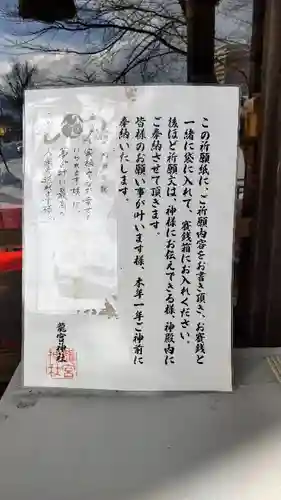 この祈願紙に、ご祈願内容をお書き頂き、お賽銭と
一緒に袋に入れて、賽銭箱にお入れください。
後ほど祈願文は、神様にお伝えできる様、神殿内に
ご奉納させて頂きます。
皆様のお願い事が叶います様、本年一年ご神前に
奉納いたします。
龍宮神社
龍宮
神社